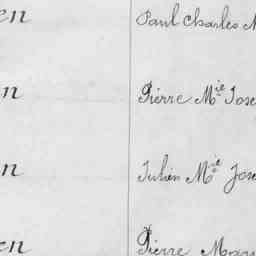 en Paul Charles M
n Pierre Mie Jose
n Julien Mie Jose
en Pierre Marie